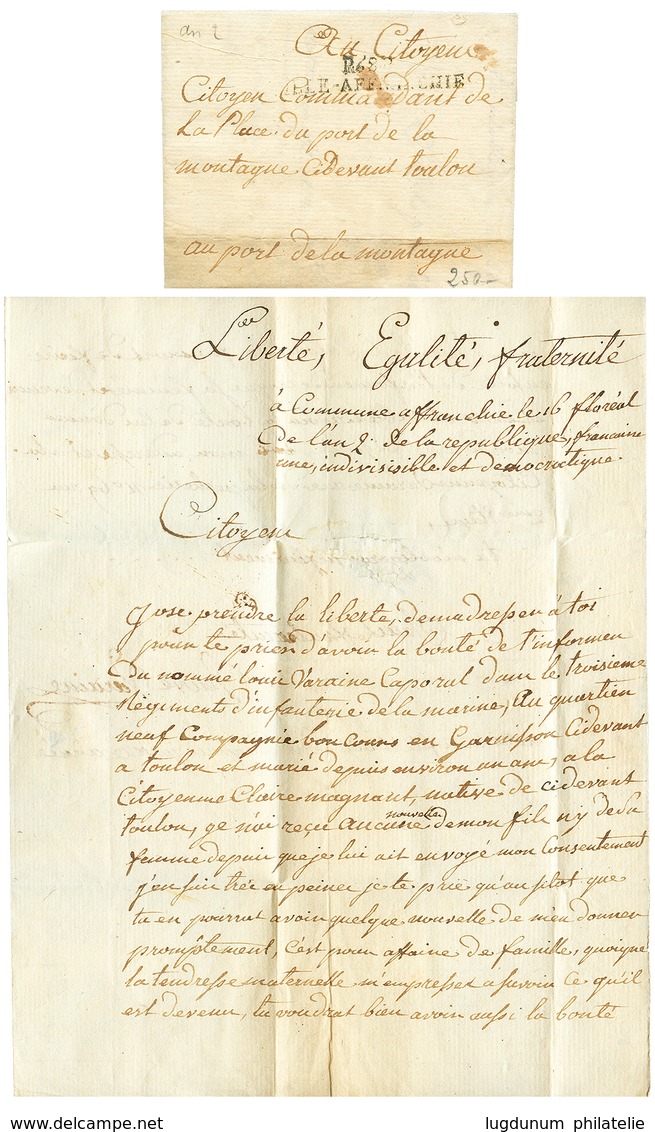 an 2
Au Citoyen
R68
LLE-AFFRANCHIE
Citoyen Commandant de
La Place du port de la
montagne cidevant toulon
au port de la montagne
250-
Liberté, Egalité, fraternité
à Commune affranchie le 16 floréal
De l'an 2 de la republique, francaise
une, indivisisible et democratique
Citoyen
J'ose prendre la liberte, demadresser à toi
pour te prier d'avoir la bonté de t'informer
Du nommé louis Varaine Caporal dans le troisieme
Regiments d'infanterie de la marine, Au quartier
neuf Compagnie bon Cours en Garnisson Cidevant
a toulon et marié depuis environ un an, a la
Citoyenne Claire magnant, native de cidevant
toulon, ge n'ai reçue aucune nouvelle de mon fils n'y de sa
femme depuis que je lui ait envoyé mon Consentement
j'en suis très en peinee je te prie qu'ausitot que
tu en pourrat avoir quelque nouvelle de m'en donner
promptement, c'est pour affaire de famille, quoique
la tendresse maternelle m'empresset a savoir ce qu'il
est devenu, tu voudrat bien avoir aussi la bonté
www.delcampe.net
lugdunum philatelie